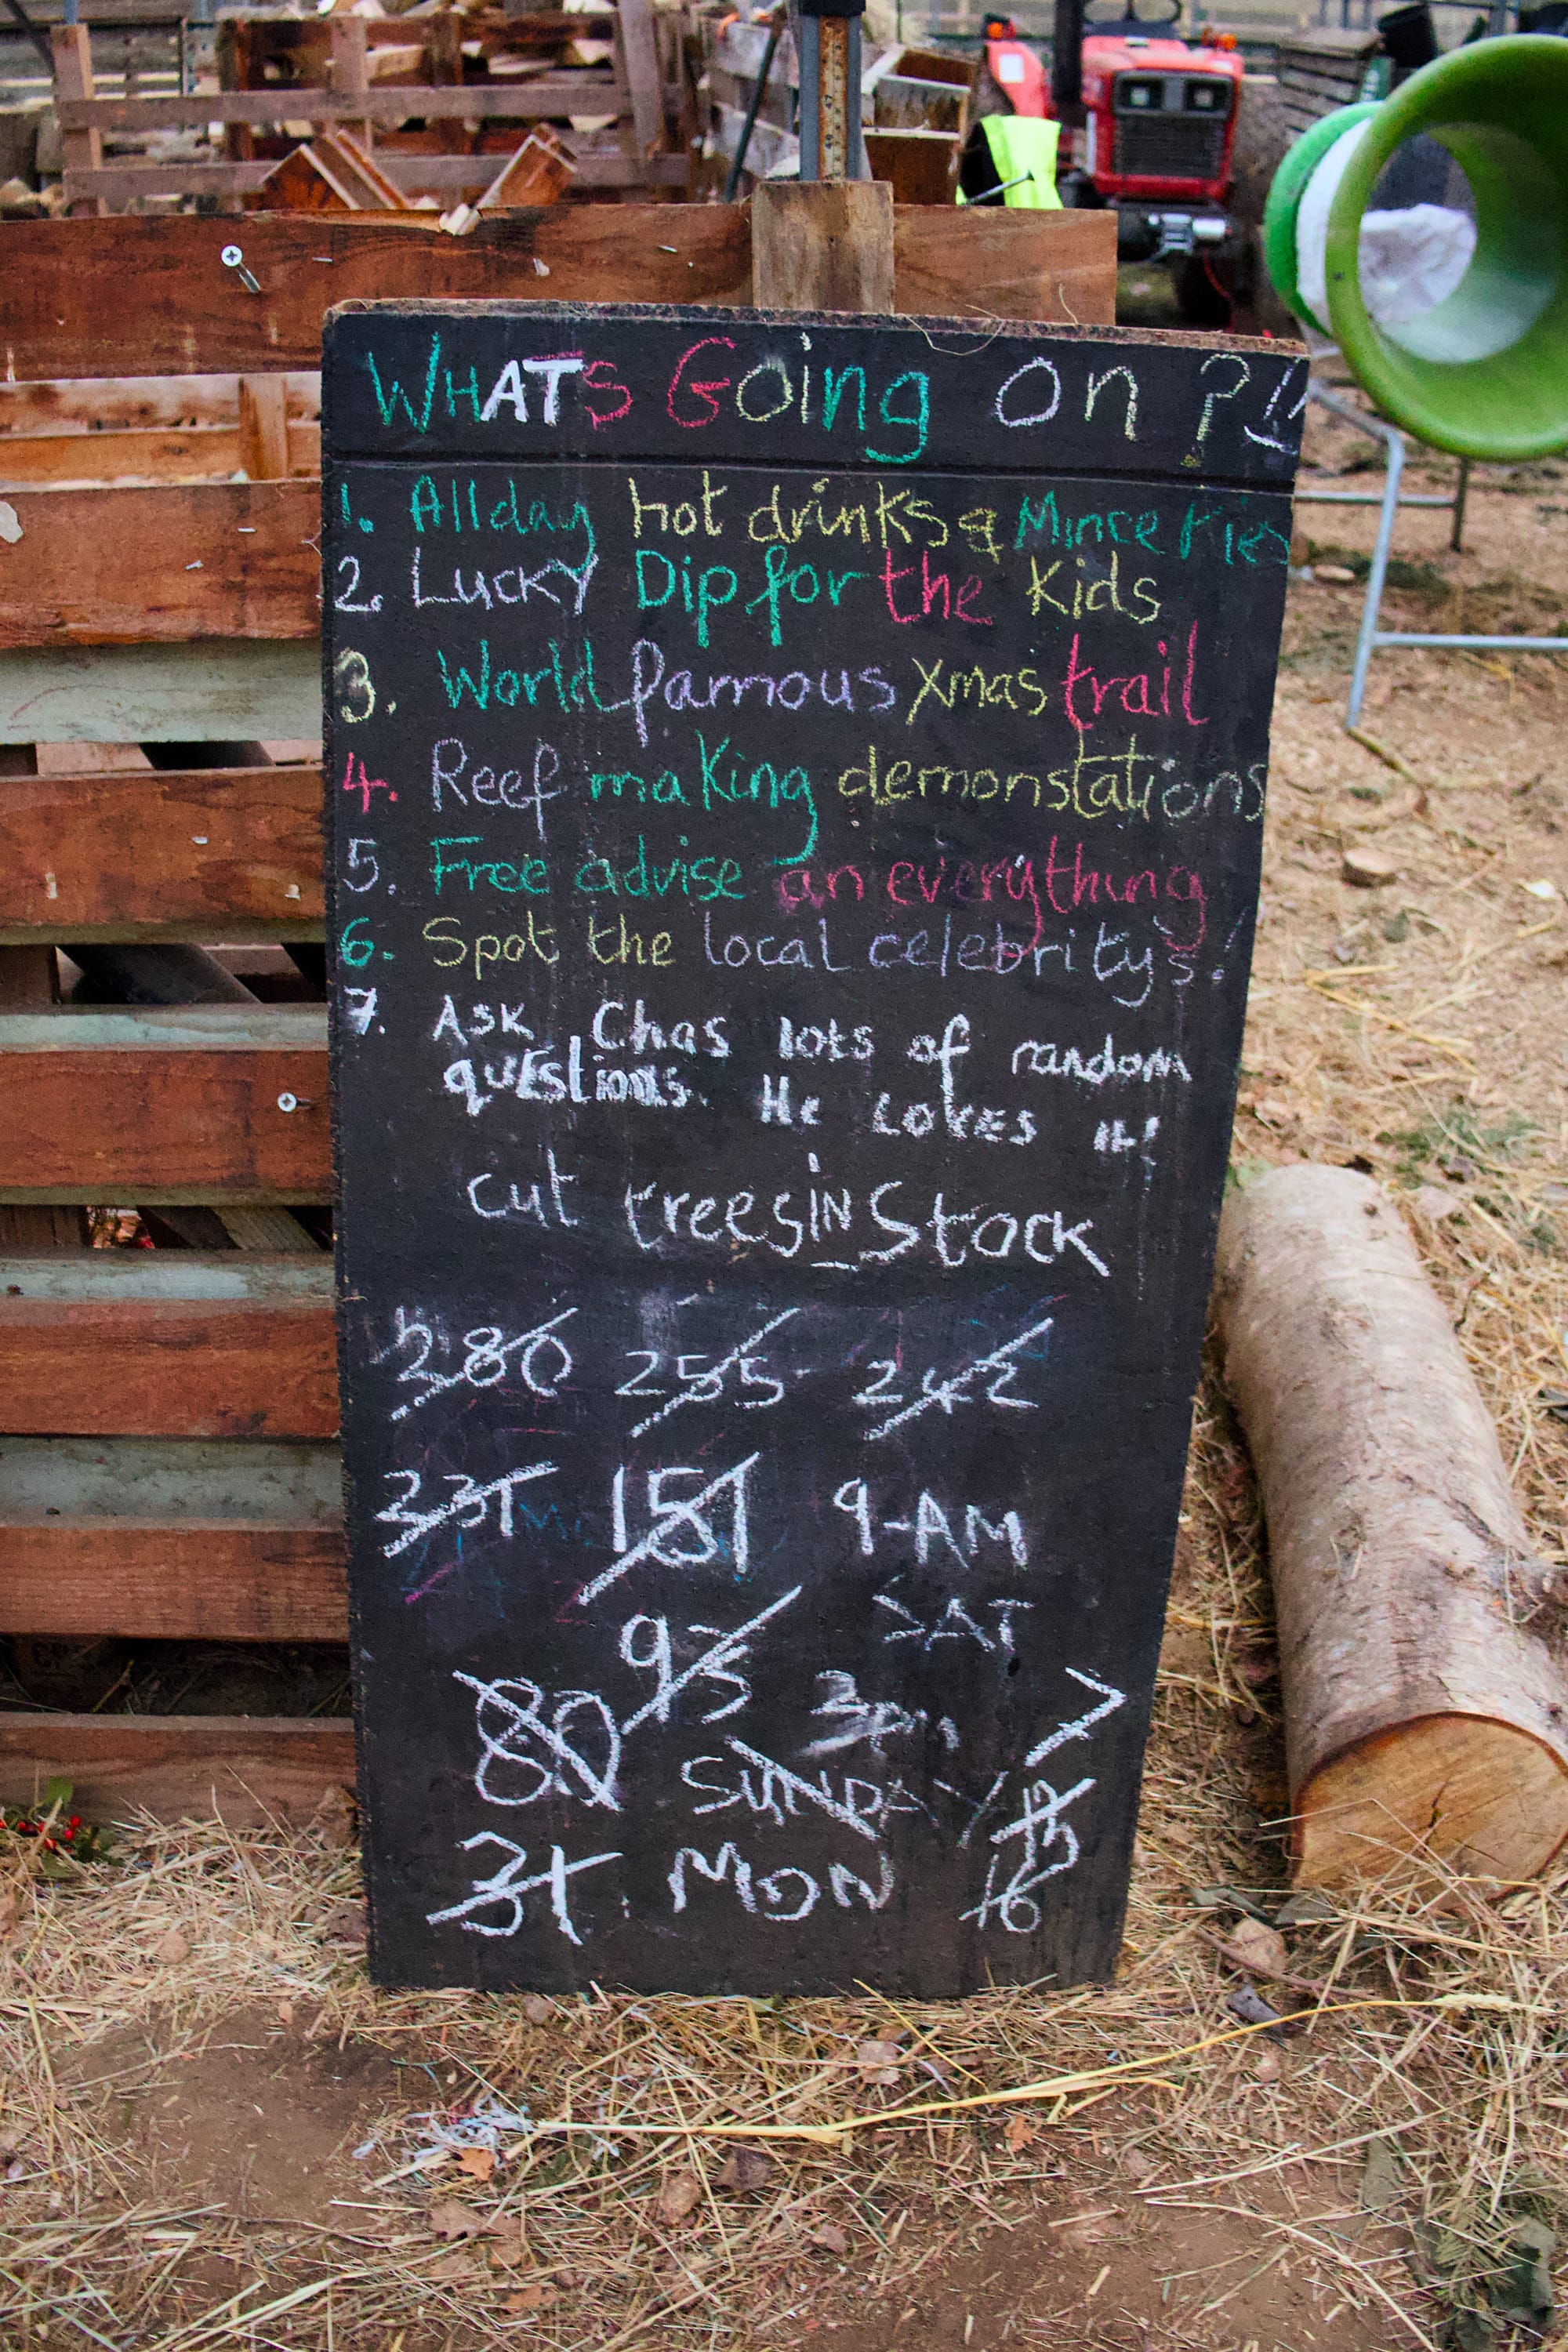 WHATS Going On ?!!
1. All day hot drinks & Mince Pies
2. Lucky Dip for the Kids
3. World famous Xmas trail
4. Reef making demonstations
5. Free advise an everything
6. Spot the local celebritys!
7. ASK Chas lots of random
questions. He LOVES it!
cut trees IN Stock
280 255 242
231 151 9-AM
SAT
93
80 3pm 7
SUNDAY 12
31. MON 16